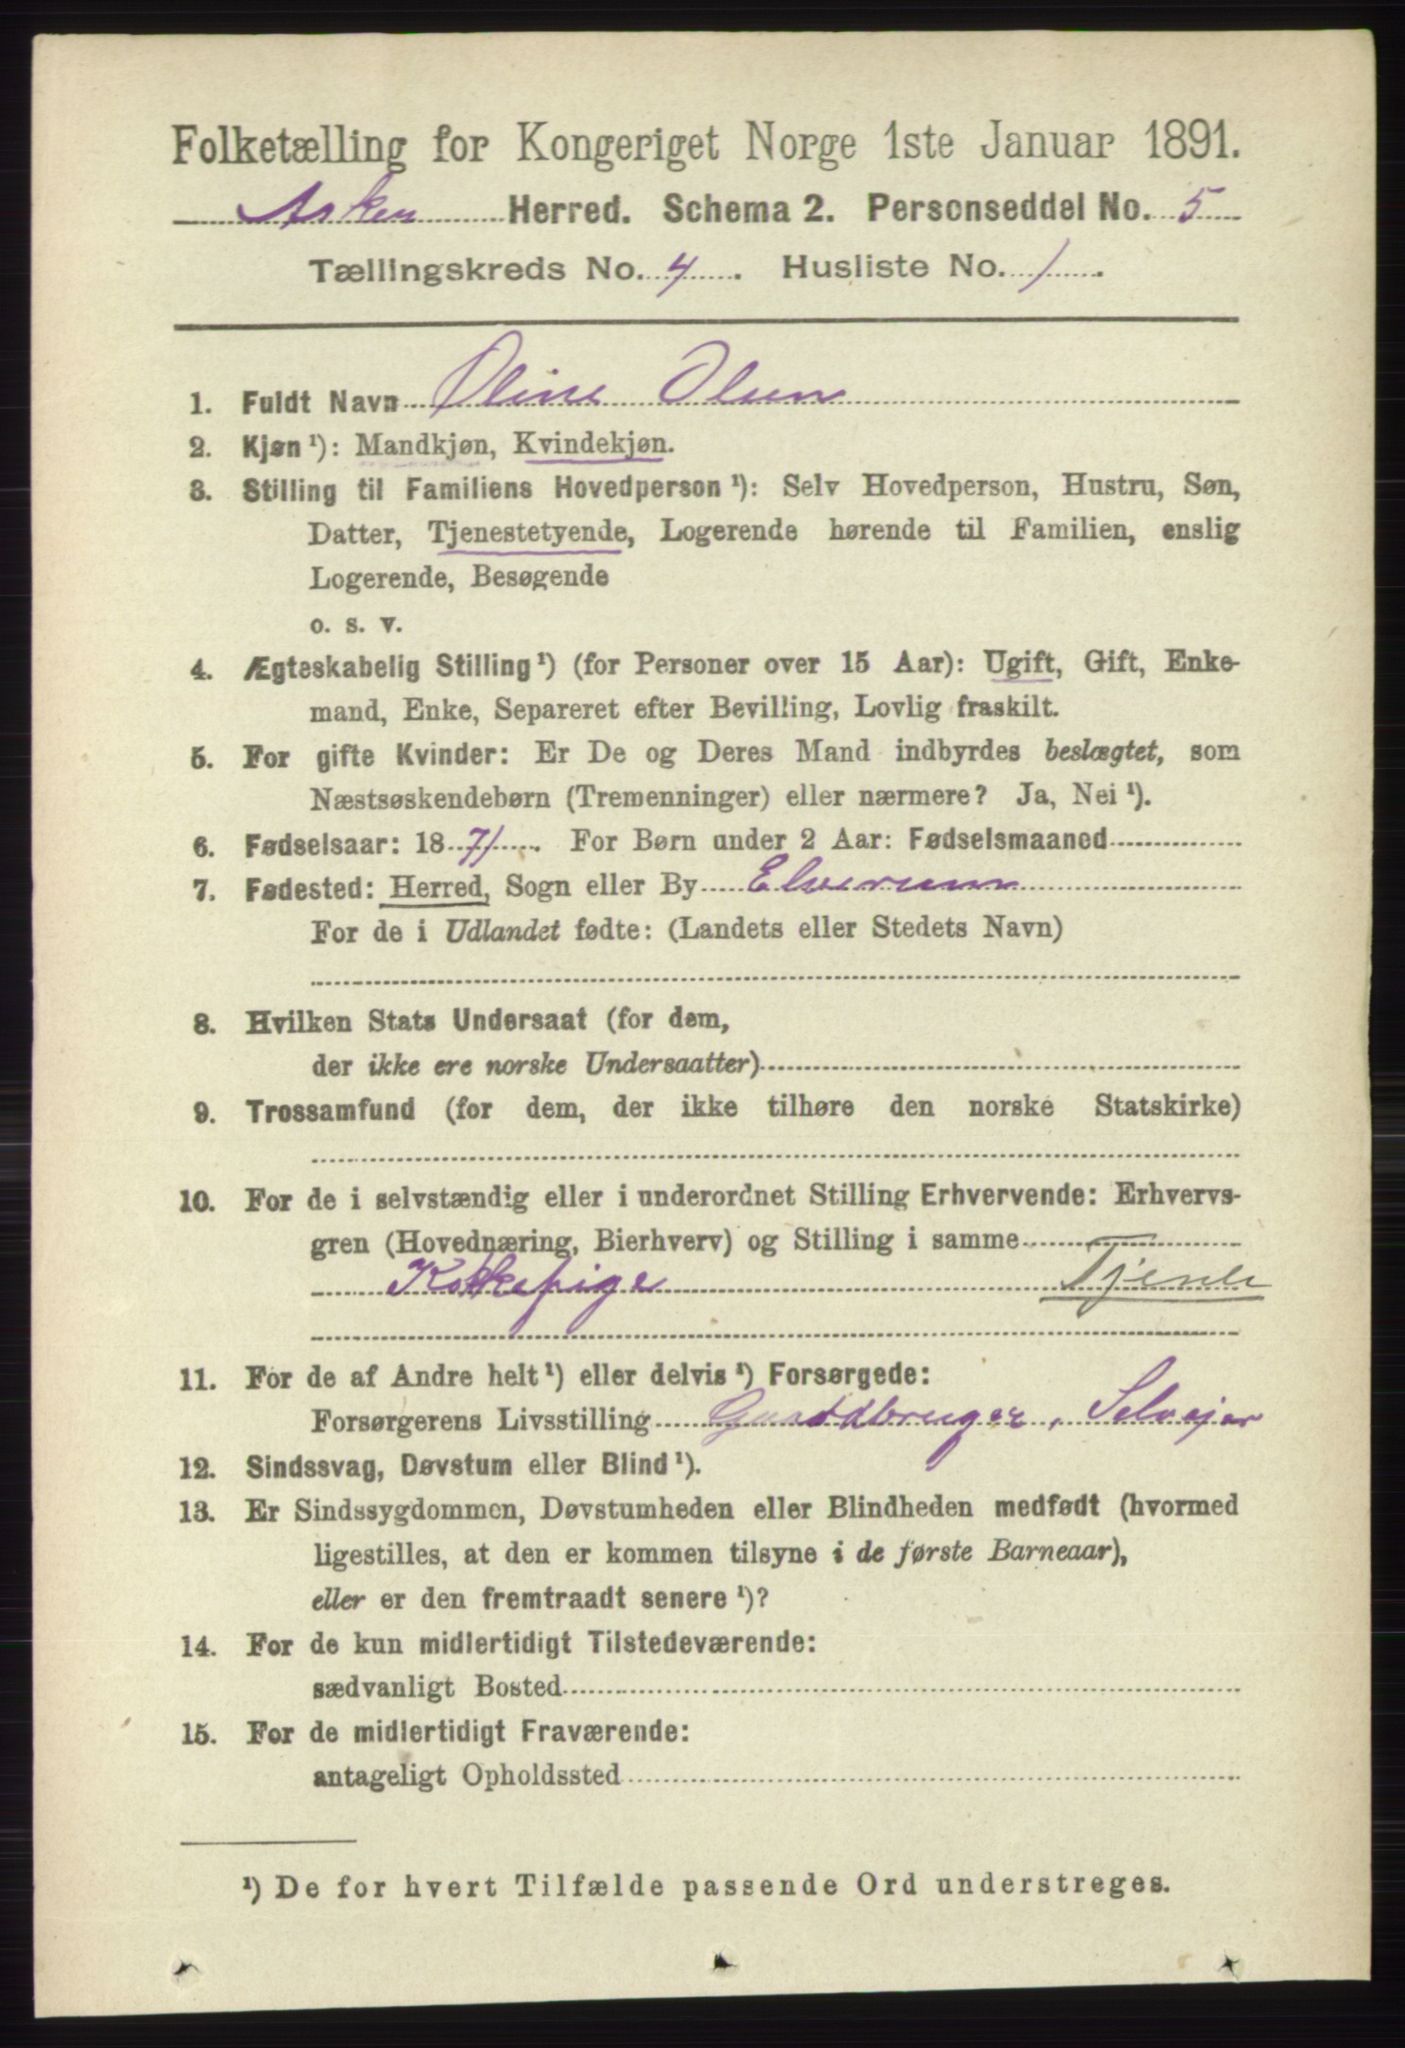 Folketælling for Kongeriget Norge 1ste Januar 1891.
Asker Herred. Schema 2. Personseddel No. 5
Tællingskreds No. 4. Husliste No. 1.
1. Fuldt Navn Oline Olsen
2. Kjøn¹): Mandkjøn, Kvindekjøn.
3. Stilling til Familiens Hovedperson¹): Selv Hovedperson, Hustru, Søn,
Datter, Tjenestetyende, Logerende hørende til Familien, enslig
Logerende, Besøgende
o. s. v.
4. Ægteskabelig Stilling¹) (for Personer over 15 Aar): Ugift, Gift, Enke-
mand, Enke, Separeret efter Bevilling, Lovlig fraskilt.
5. For gifte Kvinder: Er De og Deres Mand indbyrdes beslægtet, som
Næstsøskendebørn (Tremenninger) eller nærmere? Ja, Nei¹).
6. Fødselsaar: 1871. For Børn under 2 Aar: Fødselsmaaned
7. Fødested: Herred, Sogn eller By Elverum
For de i Udlandet fødte: (Landets eller Stedets Navn)
8. Hvilken Stats Undersaat (for dem,
der ikke ere norske Undersaatter)
9. Trossamfund (for dem, der ikke tilhøre den norske Statskirke)
10. For de i selvstændig eller i underordnet Stilling Erhvervende: Erhvervs-
gren (Hovednæring, Bierhverv) og Stilling i samme
Kokkepige Tjenle
11. For de af Andre helt¹) eller delvis¹) Forsørgede:
Forsørgerens Livsstilling Gaardbruger, Selvejer
12. Sindssvag, Døvstum eller Blind¹).
13. Er Sindssygdommen, Døvstumheden eller Blindheden medfødt (hvormed
ligestilles, at den er kommen tilsyne i de første Barneaar),
eller er den fremtraadt senere¹)?
14. For de kun midlertidigt Tilstedeværende:
sædvanligt Bosted
15. For de midlertidigt Fraværende:
antageligt Opholdssted
¹) De for hvert Tilfælde passende Ord understreges.